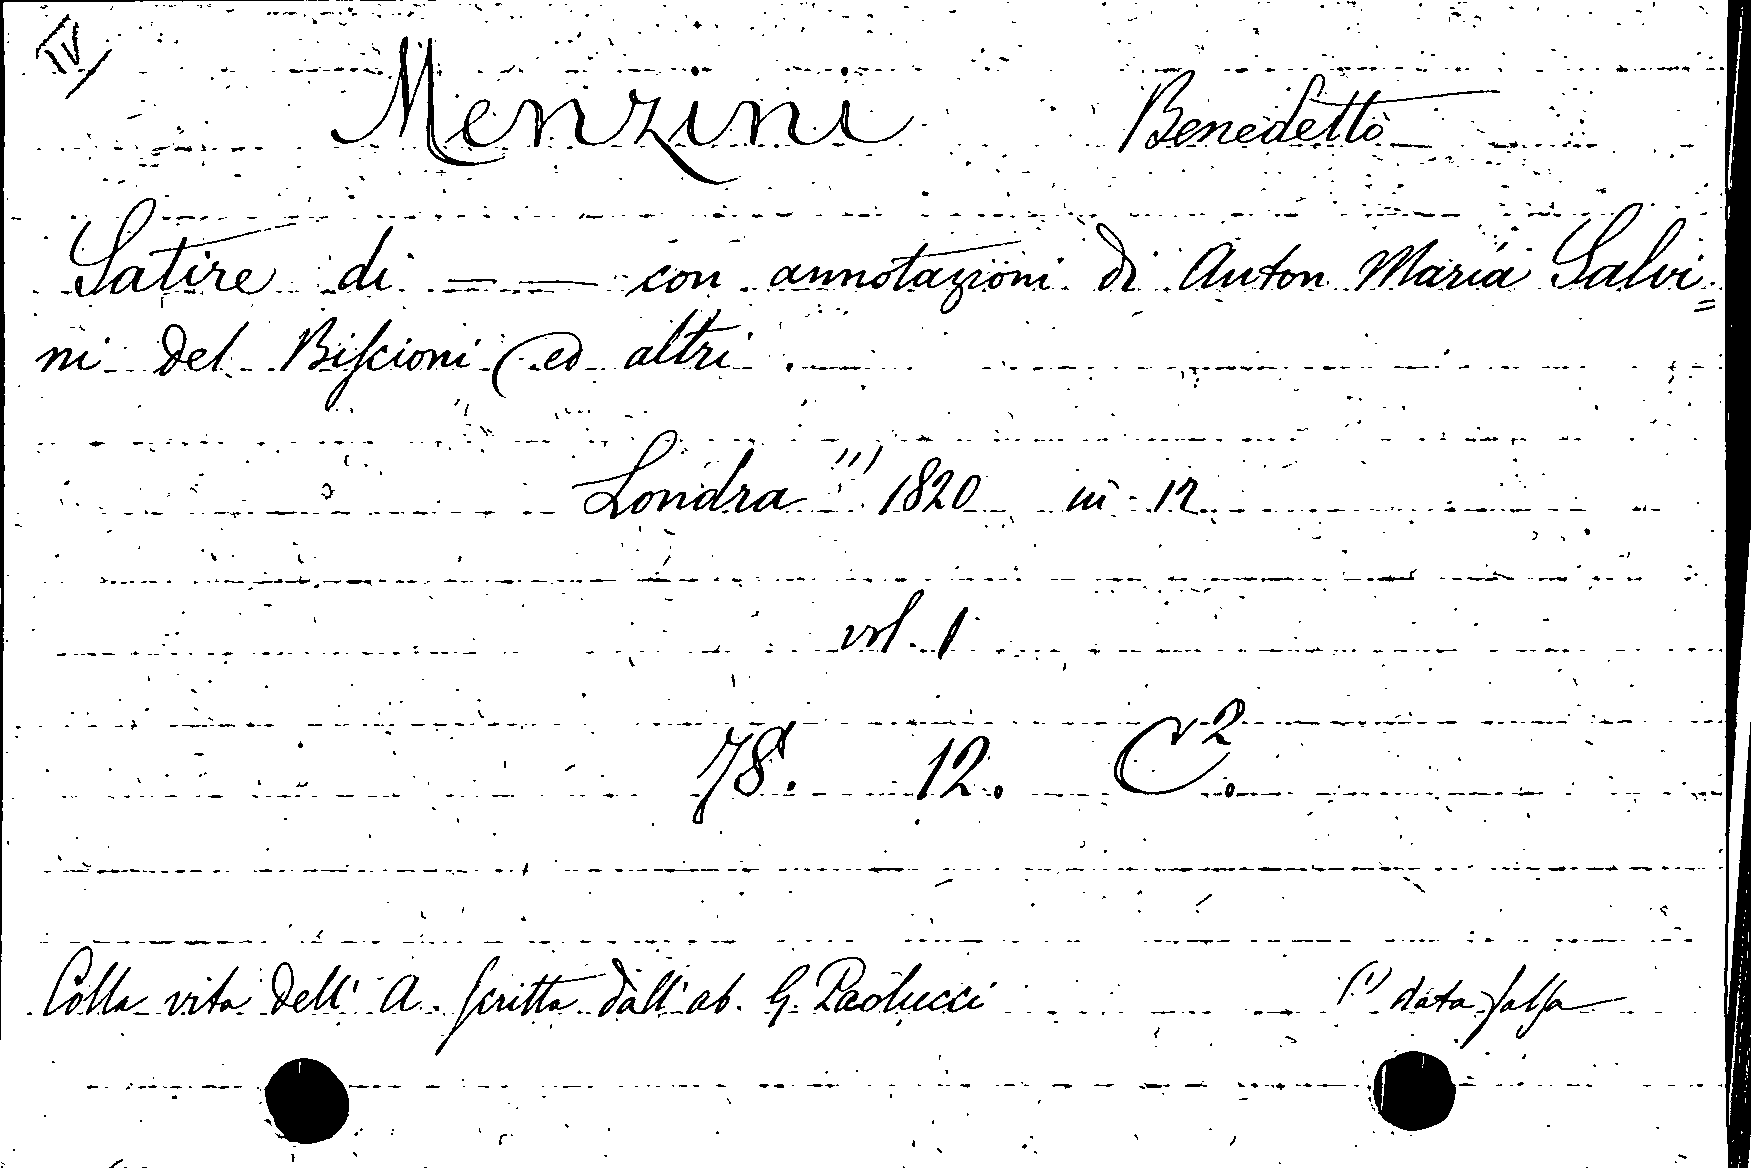 IV
Menzini Benedetto
Satire di — — con annotazioni di Anton Maria Salvi=
ni del Biscioni ed altri.
Londra (1) 1820 in 12
vol. 1
78. 12. C². 
Colla vita dell' A. scritta dall' ab. G. Paolucci (1) data falsa